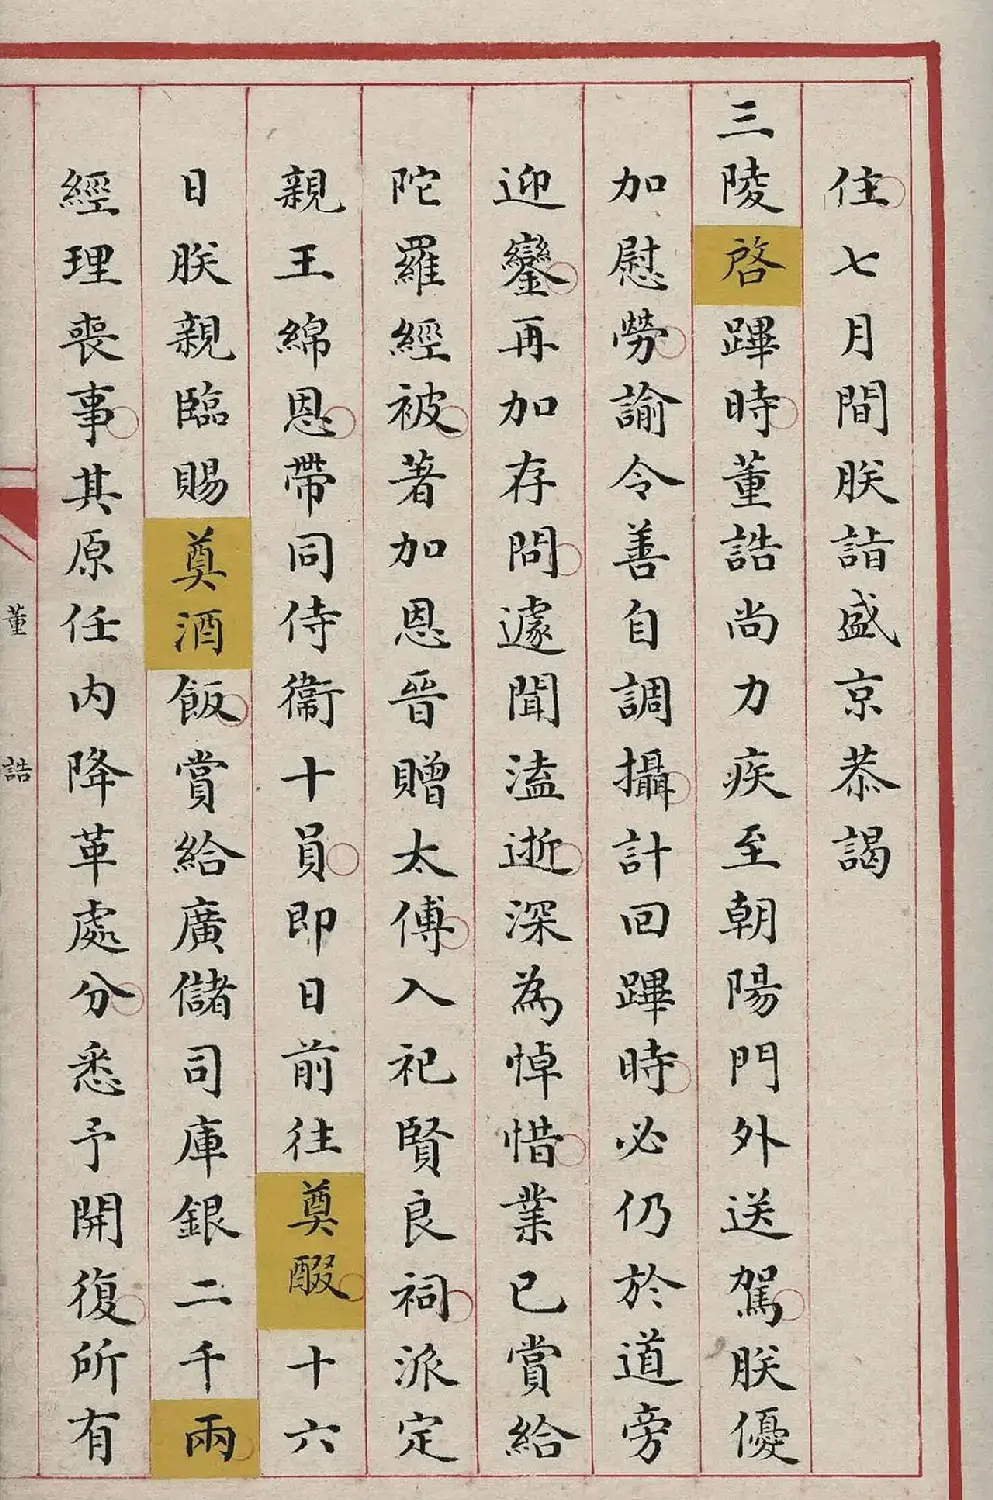 住七月間朕詣盛京恭謁
三陵啓蹕時董誥尚力疾至朝陽門外送駕朕優
加慰勞諭令善自調攝計回蹕時必仍於道旁
迎鑾再加存問遽聞溘逝深為悼惜業已賞給
陀羅經被著加恩晉贈太傅入祀賢良祠派定
親王綿恩帶同侍衞十員即日前往奠醊十六
日朕親臨賜奠酒飯賞給廣儲司庫銀二千兩
經理喪事其原任内降革處分悉予開復所有
董誥